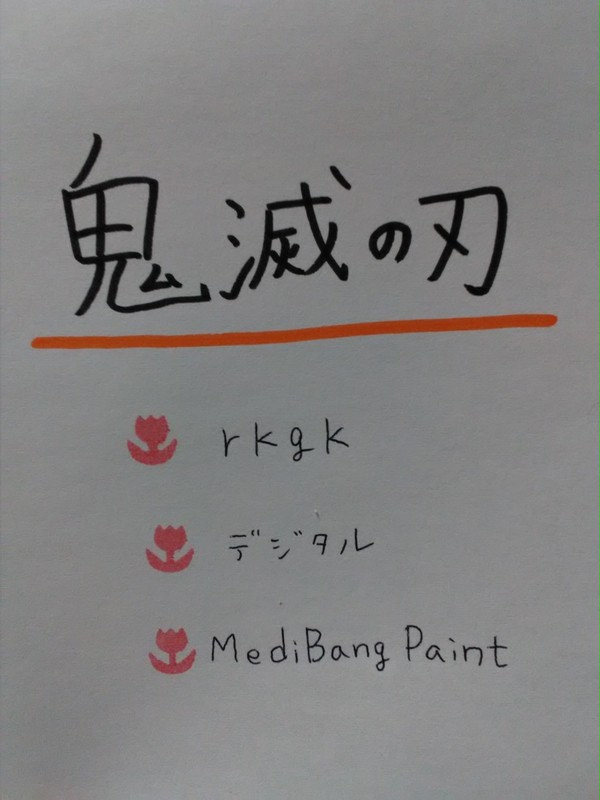 鬼滅の刃
rkgk
デジタル
MediBang Paint